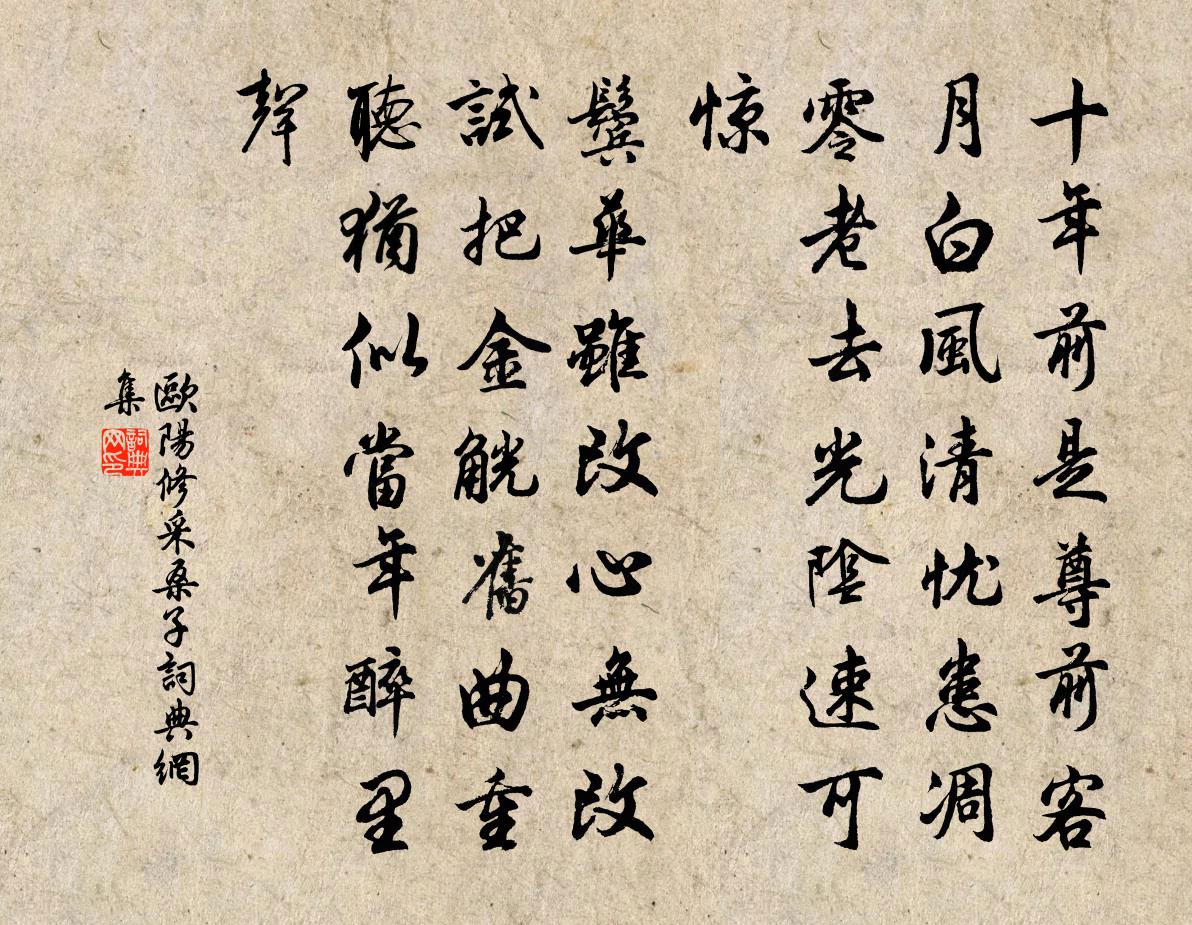 十年前是尊前客
月白風清忧患凋
零老去光陰速可
惊
鬓華雖改心無改
試把金觥舊曲重
聽猶似當年醉里
聲
歐陽修采桑子詞典網
集
詞典
网印